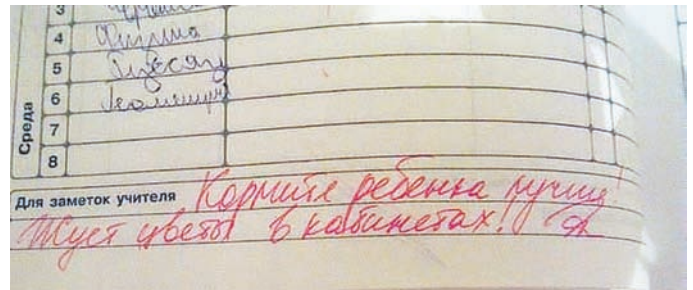 3
4 Физика
5 Русяз
6 Геометрия
7
8
Среда
Для заметок учителя Кормите ребенка лучше!
Жует цветы в кабинетах!